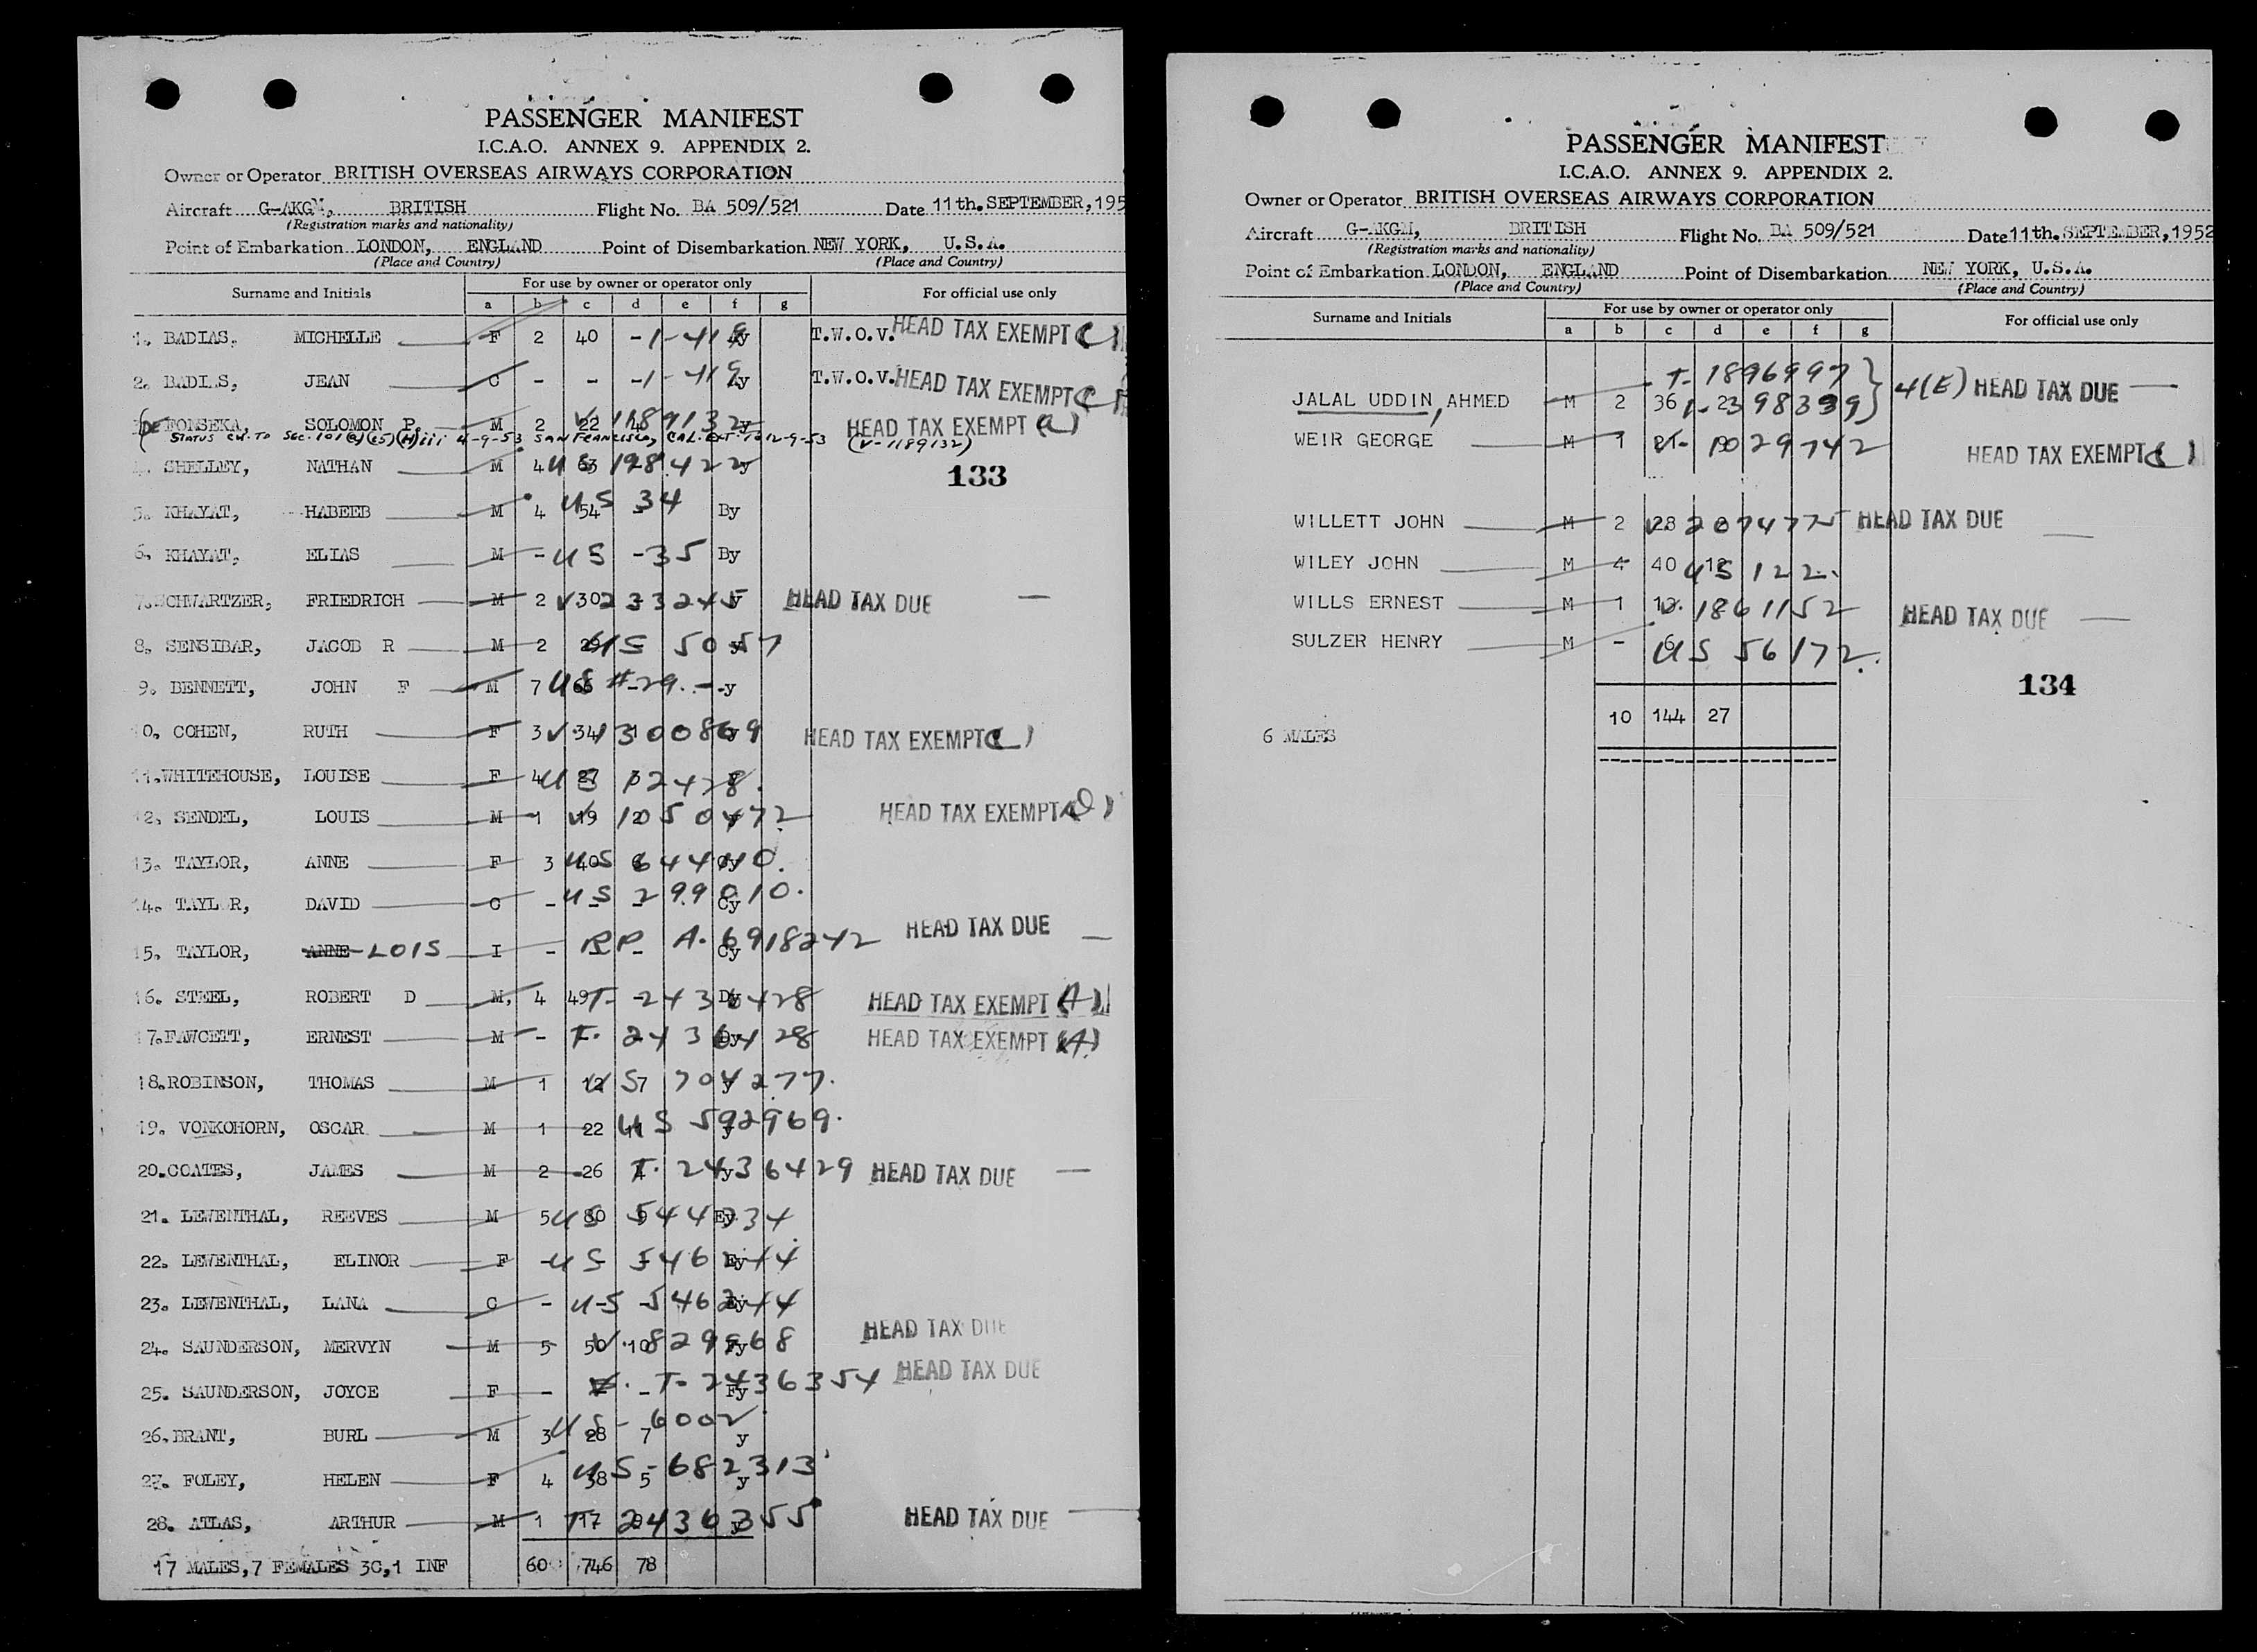 PASSENGER MANIFEST
I.C.A.O. ANNEX 9. APPENDIX 2.
Owner or Operator BRITISH OVERSEAS AIRWAYS CORPORATION
Aircraft G-AKGM, BRITISH Flight No. BA 509/521 Date 11th. SEPTEMBER, 195
(Registration marks and nationality)
Point of Embarkation LONDON, ENGLAND Point of Disembarkation NEW YORK, U.S.A.
(Place and Country) (Place and Country)
Surname and Initials For use by owner or operator only For official use only
a b c d e f g
1. BADIAS, MICHELLE F 2 40 T.W.O.V. HEAD TAX EXEMPT
2. BADIAS, JEAN C - - T.W.O.V. HEAD TAX EXEMPT
DE FONSEKA, SOLOMON P. M 2 22 V 1189132 HEAD TAX EXEMPT (a)
STATUS CH. TO SEC. 101(a)(15)(H)iii 4-9-53 SAN FRANCISCO, CAL. EXT. TO 12-9-53 (V-1189132)
4. SHELLEY, NATHAN M 4 63 US 198422
133
5. KHAYAT, HABEEB M 4 54 US 34 By
6. KHAYAT, ELIAS M - US -35 By
7. SCHWARTZER, FRIEDRICH M 2 30 V 233245 HEAD TAX DUE
8. SENSIBAR, JACOB R M 2 29 US 5057
9. BENNETT, JOHN F M 7 65 US #29. - y
10. COHEN, RUTH F 3 34 V 1300869 HEAD TAX EXEMPT
11. WHITEHOUSE, LOUISE F 4 37 US 12478.
12. SENDEL, LOUIS M 1 19 V 1050472 HEAD TAX EXEMPT
13. TAYLOR, ANNE F 3 40 US 64440.
14. TAYLOR, DAVID C - US 299010. Cy
15. TAYLOR, ANNE LOIS I - - - RP A. 6918242 Cy HEAD TAX DUE
16. STEEL, ROBERT D M, 4 49 T- 2436428 Dy HEAD TAX EXEMPT (A)
17. FAWCETT, ERNEST M - T. 2436428 Dy HEAD TAX EXEMPT (A)
18. ROBINSON, THOMAS M 1 12 7 US 704277.
19. VONKOHORN, OSCAR M 1 22 11 US 592969. y
20. COATES, JAMES M 2 26 T. 2436429 y HEAD TAX DUE
21. LEVENTHAL, REEVES M 5 80 9 US 544334 Ey
22. LEVENTHAL, ELINOR F - US 546244 Ey
23. LEVENTHAL, LANA C - US 546244 Ey
24. SAUNDERSON, MERVYN M 5 50 10 V. 829968 Fy HEAD TAX DUE
25. SAUNDERSON, JOYCE F - - T- 2436354 Fy HEAD TAX DUE
26. BRANT, BURL M 3 28 7 US- 6002 y
27. FOLEY, HELEN F 4 38 5 US-682313 y
28. ATLAS, ARTHUR M 1 17 T 2436355 y HEAD TAX DUE
17 MALES, 7 FEMALES 3C, 1 INF 60 746 78
PASSENGER MANIFEST
I.C.A.O. ANNEX 9. APPENDIX 2.
Owner or Operator BRITISH OVERSEAS AIRWAYS CORPORATION
Aircraft G-AKGM, BRITISH Flight No. BA 509/521 Date 11th. SEPTEMBER, 1952
(Registration marks and nationality)
Point of Embarkation LONDON, ENGLAND Point of Disembarkation NEW YORK, U.S.A.
(Place and Country) (Place and Country)
Surname and Initials For use by owner or operator only For official use only
a b c d e f g
T- 1896997
JALAL UDDIN, AHMED M 2 36 2398399 4(E) HEAD TAX DUE
WEIR GEORGE M 1 T- 1029742 HEAD TAX EXEMPT
WILLETT JOHN M 2 28 V 2074775 HEAD TAX DUE
WILEY JOHN M 4 40 12 US 122.
WILLS ERNEST M 1 V. 1861152 HEAD TAX DUE
SULZER HENRY M - 6 US 56172.
134
10 144 27
6 MALES